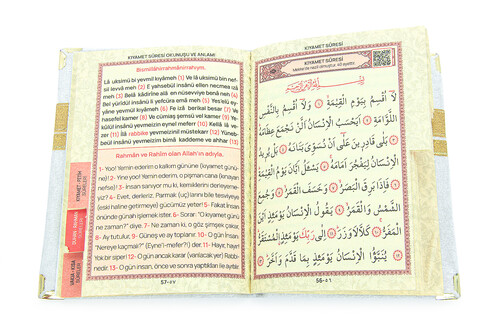 KIYAMET SÛRESİ OKUNUŞU VE ANLAMI
Bismillâhirrahmânirrahîym.
Lâ uksimü bi yevmil kıyâmeh (1) Ve lâ uksimü bin nef-
sil levvâ meh (2) E yahsebül insânü ellen necmea ızâ
meh (3) Belâ kâdirîne alâ en nüsevviye benâ neh (4)
Bel yürîdül insânü li yefcüra emâ meh (5) Yes'elü ey-
yâne yevmül kıyâmeh (6) Fe izâ berikal besar (7) Ve
hasefel kamer (8) Ve cümiaş şemsü vel kamer (9) Ye-
kûlül insânü yevmeizin eynel mefer (10) Kellâ lâ ve-
zer (11) İlâ rabbike yevmeizinil müstekarr (12) Yüneb-
beül insânü yevmeizim bimâ kaddeme ve ahhar (13)
Rahmân ve Rahîm olan Allah'ın adıyla.
1- Yoo! Yemin ederim o kalkım gününe (kıyamet gü-
nüne)! 2- Yine yoo! Yemin ederim, o pişman cana (kınayan
nefse)! 3- İnsan sanıyor mu ki, kemiklerini derleyeme-
yiz? 4- Evet, derleriz. Parmak (uç)larını bile tesviyeye
(eski haline getirmeye) gücümüz yeter! 5- Fakat İnsan
önünde günah işlemek ister. 6- Sorar: "O kıyamet günü
ne zaman?" diye. 7- Ne zaman ki, o göz şimşek çakar.
8- Ay tutulur. 9- Güneş ve ay toplanır. 10- O gün İnsan,
"Nereye kaçmalı?" (Eyne'l-mefer?) der. 11- Hayır, hayır!
Yok bir siper! 12- O gün ancak karar (varılacak yer) Rabbi-
nedir. 13- O gün insan, önce ve sonra yaptıkları ile ayıtılır.
57-٥٧
KIYAMET SÛRESİ
KIYAMET SÛRESİ
Mekke'de nazil olmuştur. 40 ayettir.
بِسْمِ اللّٰهِ الرَّحْمٰنِ الرَّحِيمِ
لَٓا اُقْسِمُ بِيَوْمِ الْقِيٰمَةِۙ ﴿١﴾ وَلَٓا اُقْسِمُ بِالنَّفْسِ
اللَّوَّامَةِ ﴿٢﴾ اَيَحْسَبُ الْاِنْسَانُ اَلَّنْ نَجْمَعَ عِظَامَهُ
﴿٣﴾ بَلٰى قَادِر۪ينَ عَلٰٓى اَنْ نُسَوِّيَ بَنَانَهُ ﴿٤﴾ بَلْ يُر۪يدُ
الْاِنْسَانُ لِيَفْجُرَ اَمَامَهُ ﴿٥﴾ يَسْـَٔلُ اَيَّانَ يَوْمُ الْقِيٰمَةِ
﴿٦﴾ فَاِذَا بَرِقَ الْبَصَرُ ﴿٧﴾ وَخَسَفَ الْقَمَرُ ﴿٨﴾ وَجُمِعَ
الشَّمْسُ وَالْقَمَرُ ﴿٩﴾ يَقُولُ الْاِنْسَانُ يَوْمَئِذٍ اَيْنَ
الْمَفَرُّ ﴿١٠﴾ كَلَّا لَا وَزَرَ ﴿١١﴾ اِلٰى رَبِّكَ يَوْمَئِذٍ الْمُسْتَقَرُّ
﴿١٢﴾ يُنَبَّؤُا الْاِنْسَانُ يَوْمَئِذٍ بِمَا قَدَّمَ وَاَخَّرَ ﴿١٣﴾
56-٥٦